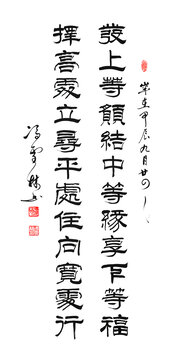 歲在甲辰九月廿四
發上等願結中等緣享下等福
擇高處立尋平處住向寬處行